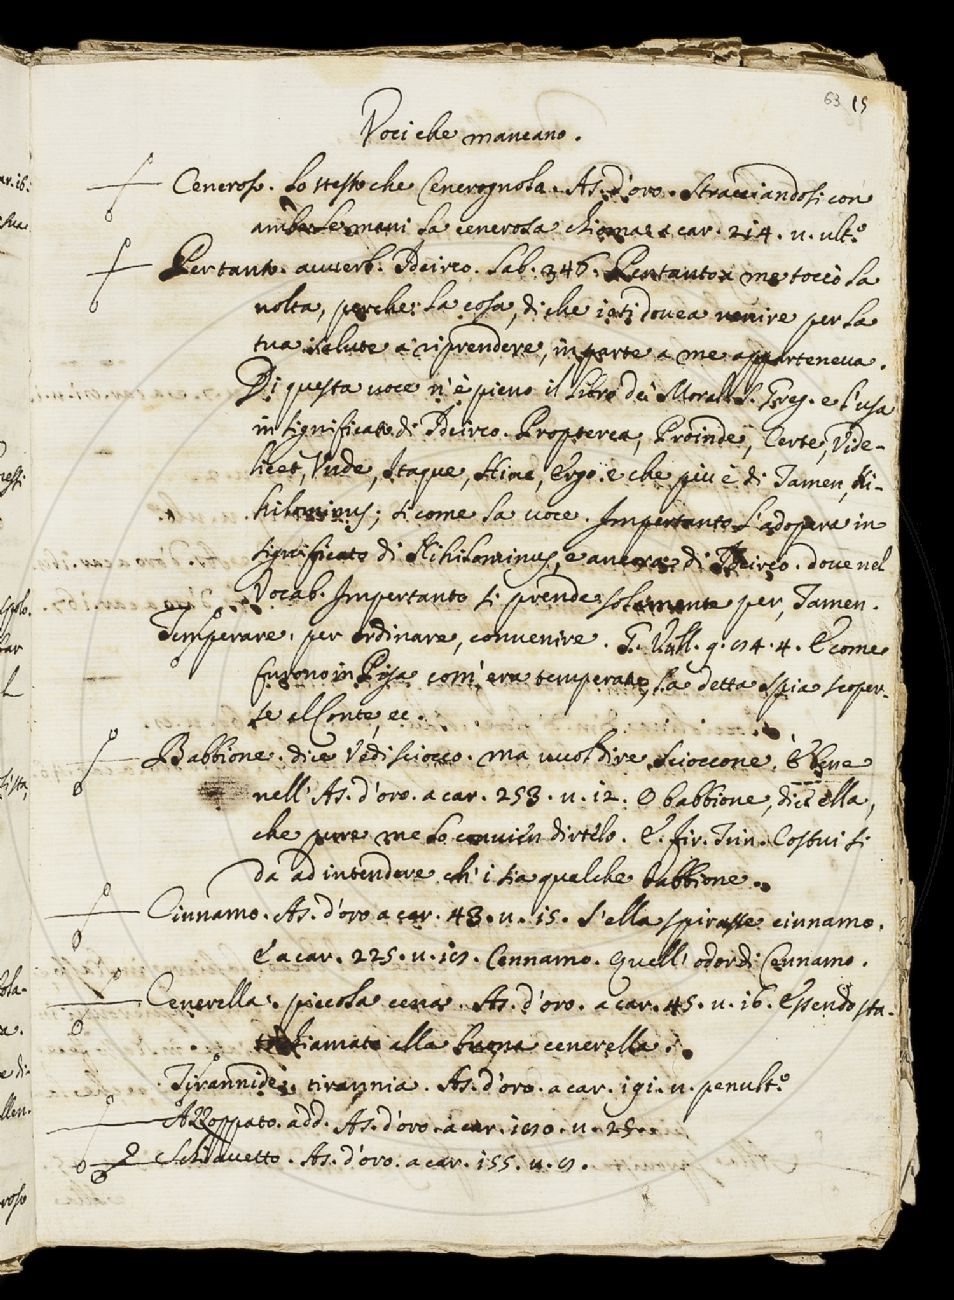 63 15
Voci che mancano.
Ceneroso. Lo stesso che Cenerognola. As. d'oro. Stracciandosi con
ambe le mani la cenerosa chioma. a car. 214. u. ult.º
Per tanto. auuerb. Idcirco. Lab. 346. Pertanto a me toccò la
uolta, perche la cosa, di che io ti douea uenire per la
tua salute a riprendere, in parte a me apparteneua.
Di questa uoce n'è pieno il libro dei Morali S. Greg. e l'usa
in significato di Idcirco. Propterea, Proinde, Certe, Vide-
licet, Vnde, Itaque, Hinc, Ergo. e che più è di Tamen, Ni-
hilominus; si come la uoce. Impertanto l'adopera in
significato di Nihilominus, e ancora di Idcirco. doue nel
Vocab. Impertanto si prende solamente per, Tamen.
Temperare. per ordinare, conuenire. G. Vill. 9. 94. 4. E come
furono in Pisa com'era temperato, la detta spia scoper-
se al Conte, ec.
Babbione. dice Vedi sciocco. ma uuol dire Scioccone. E bene
nell'As. d'oro. a car. 253. u. 12. O babbione, diss'ella,
che pure me lo conuien dirtelo. E. Fir. Trin. Costui si
da ad intendere ch'i sia qualche babbione.
Cinnamo. As. d'oro a car. 43. u. 15. S'ella spirasse cinnamo.
E a car. 225. u. 19. Cennamo. Quell'odor di Cennamo.
Cenerella. piccola cena. As. d'oro. a car. 45. u. 16. Essendo sta-
to chiamato alla buona cenerella.
Tirannide. tirannia. As. d'oro. a car. 191. u. penult.º
Azzoppato. add. As. d'oro. a car. 190. u. 25.
Schiauetto. As. d'oro. a car. 155. u. 9.